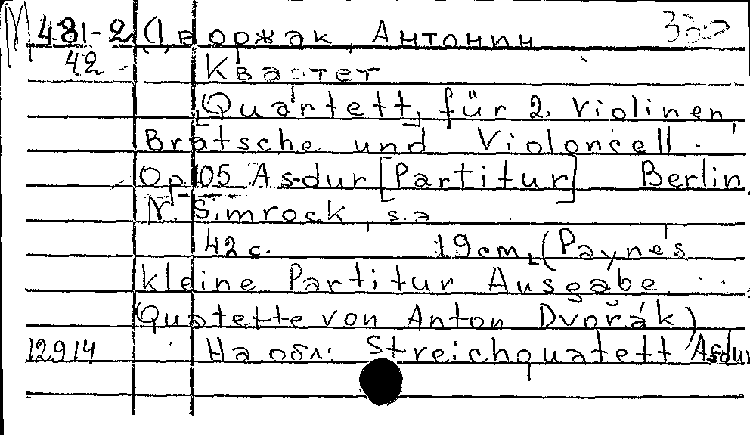 М 481-2 Дворжак, Антонин 330
42 Квартет
[Quartett, für 2. Violinen,
Bratsche und Violoncell.
Op 105 Asdur [Partitur] Berlin,
N. Simrock, s.a
42 c. 19 cm, (Payne's
kleine Partitur Ausgabe.
Quatette von Anton Dvořák)
12914 На обл: Streichquatett Asdur